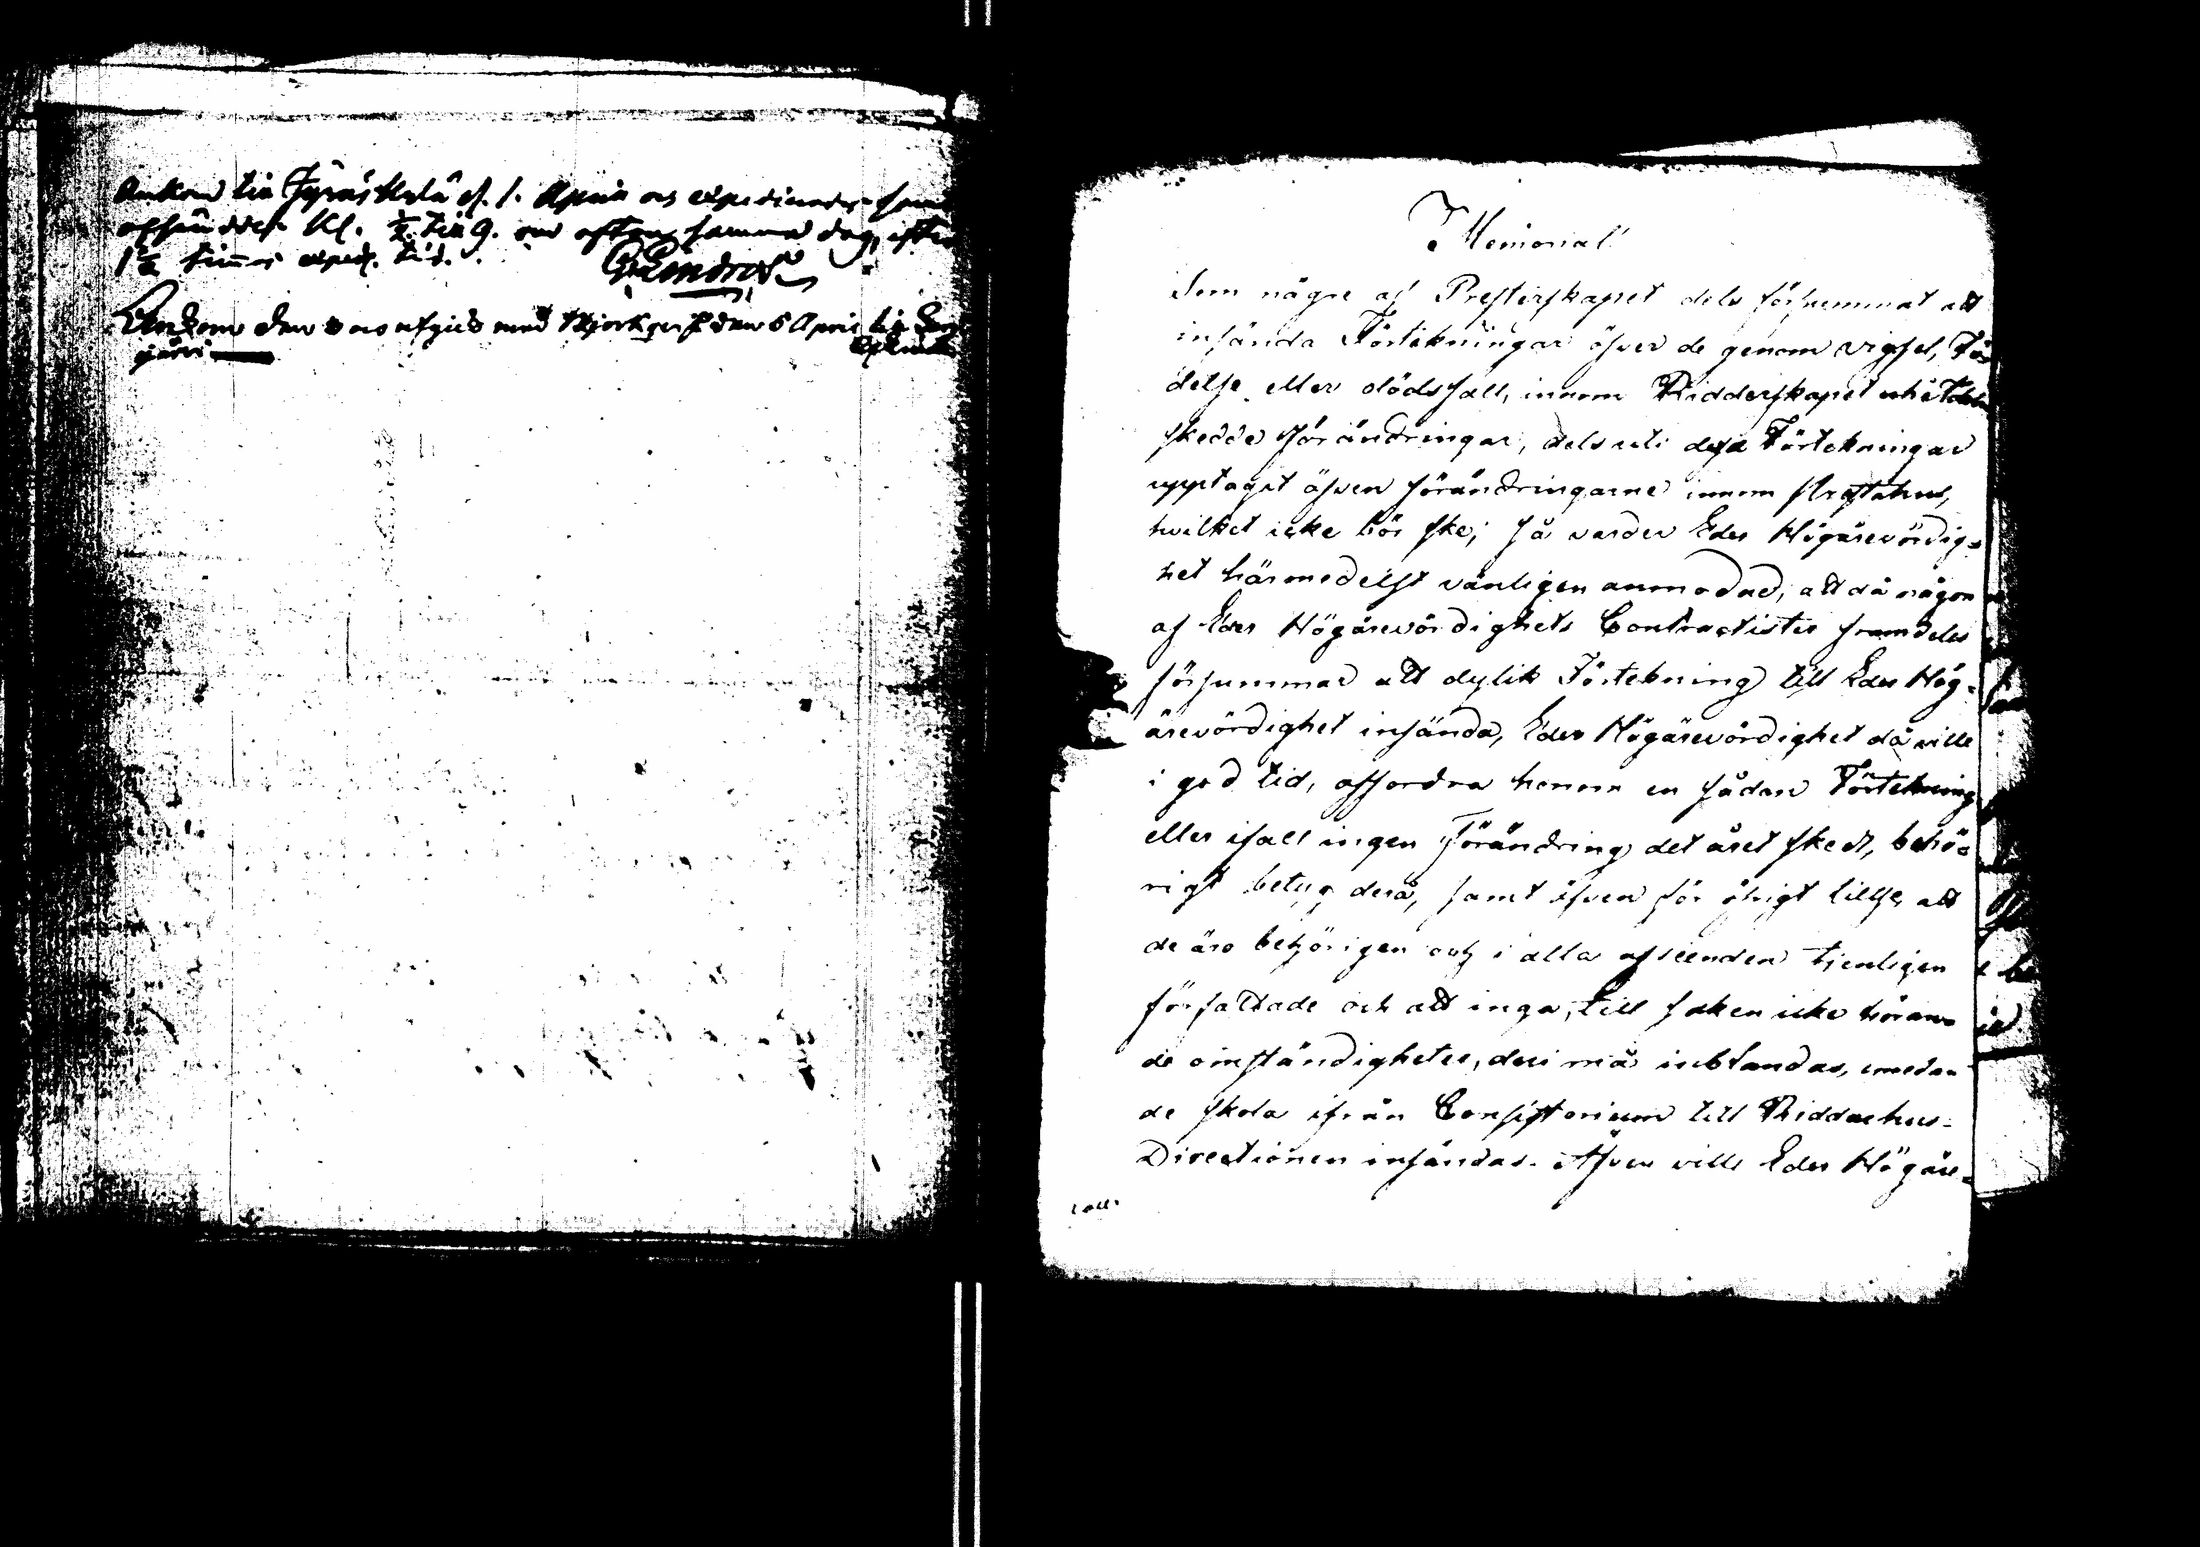 Ankom till d. 1. April och expedierades samt
afsändes Kl. ½ till 9. om afton samma dag, efter
1½ timmes exped. tid.
Ankom den och afgick med den 5 April till
Memorial!
Som någre af Presterskapet dels försummat att
insända Förtekningar öfver de genom vigsel, Fö-
delse eller dödsfall, innom Ridderskapet och Adeln
skedde förändringar, dels uti dessa Förtekningar
upptagit äfven förändringarne innom Prestehus,
hvilket icke bör ske; så varder Eder Högärevördig=
het härmedelst vänligen anmodad, att då någon
af Eders Högärevördighets Contractister framdeles
försummar att dylik Förtekning till Eder Hög-
ärevördighet insända, Eder Högärevördighet då ville
i god tid, affordra honom en sådan Förtekning
eller ifall ingen Förändring det året skedt, behö=
rigt betyg derå, samt äfven för öfrigt tillse, att
de äro behörigen och i alla afseenden tjenligen
författade och att inga, till saken icke höran=
de omständigheter, deri må inblandas, emedan
de skola ifrån Consistorium till Riddarhus-
Directionen insändas. Äfven ville Eder Högäre-